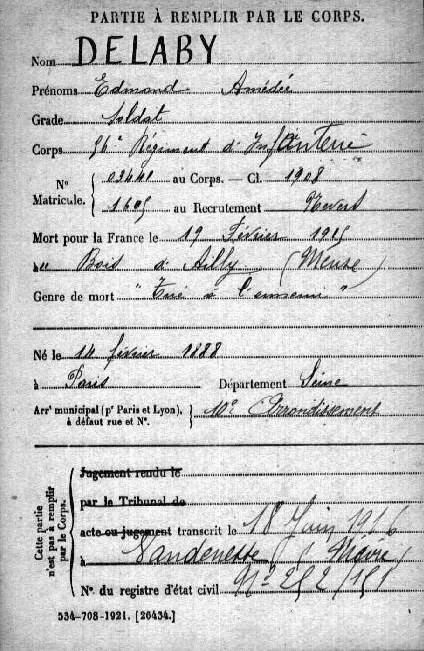 PARTIE À REMPLIR PAR LE CORPS.
Nom DELABY
Prénoms Edmond Amédée
Grade Soldat
Corps 56e Régiment d'Infanterie
No 02440 au Corps. — Cl. 1908
Matricule. 1605 au Recrutement Nevers
Mort pour la France le 19 Février 1915
à Bois d'Ailly (Meuse)
Genre de mort "Tué à l'ennemi"
Né le 14 février 1888
à Paris Département Seine
Arrt municipal (pr Paris et Lyon), à défaut rue et No. 10e Arrondissement
Cette partie n'est pas à remplir par le Corps.
Jugement rendu le
par le Tribunal de
acte ou jugement transcrit le 18 Juin 1916
à Vandenesse (Nièvre)
No. du registre d'état civil No 252/
534-708-1921. [26434.]